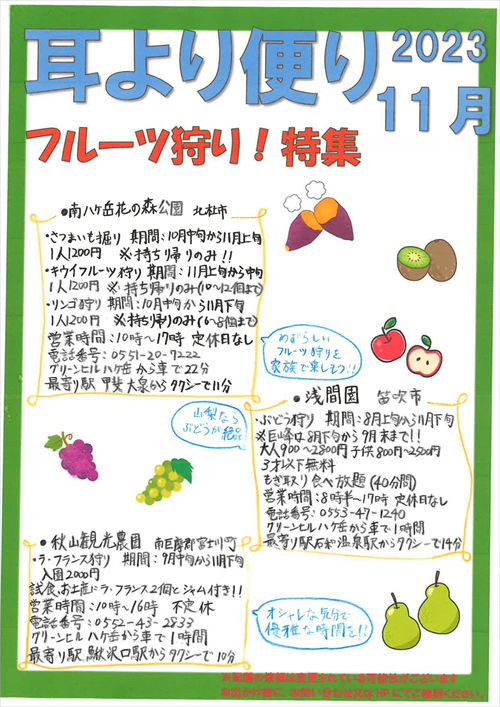 耳より便り 2023
11月
フルーツ狩り！特集
●南八ヶ岳花の森公園 北杜市
・さつまいも掘り 期間：10月中旬から11月上旬
1人1200円 ※持ち帰りのみ!!
・キウイフルーツ狩り 期間：11月上旬から中旬
1人1200円 ※持ち帰りのみ(10〜12個まで)
・リンゴ狩り 期間：10月中旬から11月下旬
1人1200円 ※持ち帰りのみ(6〜8個まで)
営業時間：10時〜17時 定休日なし
電話番号：0551-20-7222
グリーンヒル八ヶ岳から車で22分
最寄り駅 甲斐大泉からタクシーで11分
めずらしい
フルーツ狩りを
家族で楽しもう!!
●浅間園 笛吹市
・ぶどう狩り 期間：8月上旬から11月下旬
※巨峰は8月下旬から9月末まで!!
大人900〜2800円 子供800円〜2500円
3才以下無料
もぎ取り食べ放題(40分間)
営業時間：8時半〜17時 定休日なし
電話番号：0553-47-1240
グリーンヒル八ヶ岳から車で1時間
最寄り駅石和温泉駅からタクシーで14分
山梨なら
ぶどうが絶品
●秋山観光農園 南巨摩郡富士川町
・ラ・フランス狩り 期間：9月中旬から11月下旬
入園2000円
試食、お土産にラ・フランス2個とジャム付き!!
営業時間：10時〜16時 不定休
電話番号：0552-43-2833
グリーンヒル八ヶ岳から車で1時間
最寄り駅 鰍沢口駅からタクシーで10分
オシャレな気分で
優雅な時間を!!
※記載の情報は変更されている可能性がございます
お出かけ前に、お問い合わせ又はHPにてご確認ください。